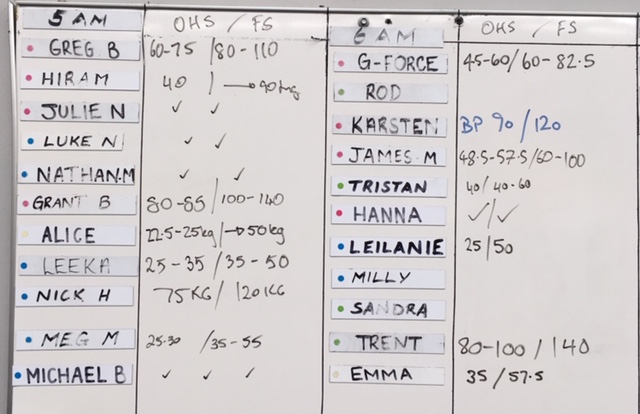 5 AM OHS / FS
GREG B 60-75 / 80-110
HIRAM 40 / → 90kg
JULIE N ✓ ✓
LUKE N ✓ ✓
NATHAN.M ✓ ✓
GRANT B 80-85 / 100-140
ALICE 22.5-25kg / → 50kg
LEEKA 25-35 / 35-50
NICK H 75KG / 120KG
MEG M 25-30 / 35-55
MICHAEL B ✓ ✓ ✓
6 AM OHS / FS
G-FORCE 45-60 / 60-82.5
ROD
KARSTEN BP 90 / 120
JAMES M 48.5-57.5 / 60-100
TRISTAN 40 / 40-60
HANNA ✓ / ✓
LEILANIE 25 / 50
MILLY
SANDRA
TRENT 80-100 / 140
EMMA 35 / 57.5